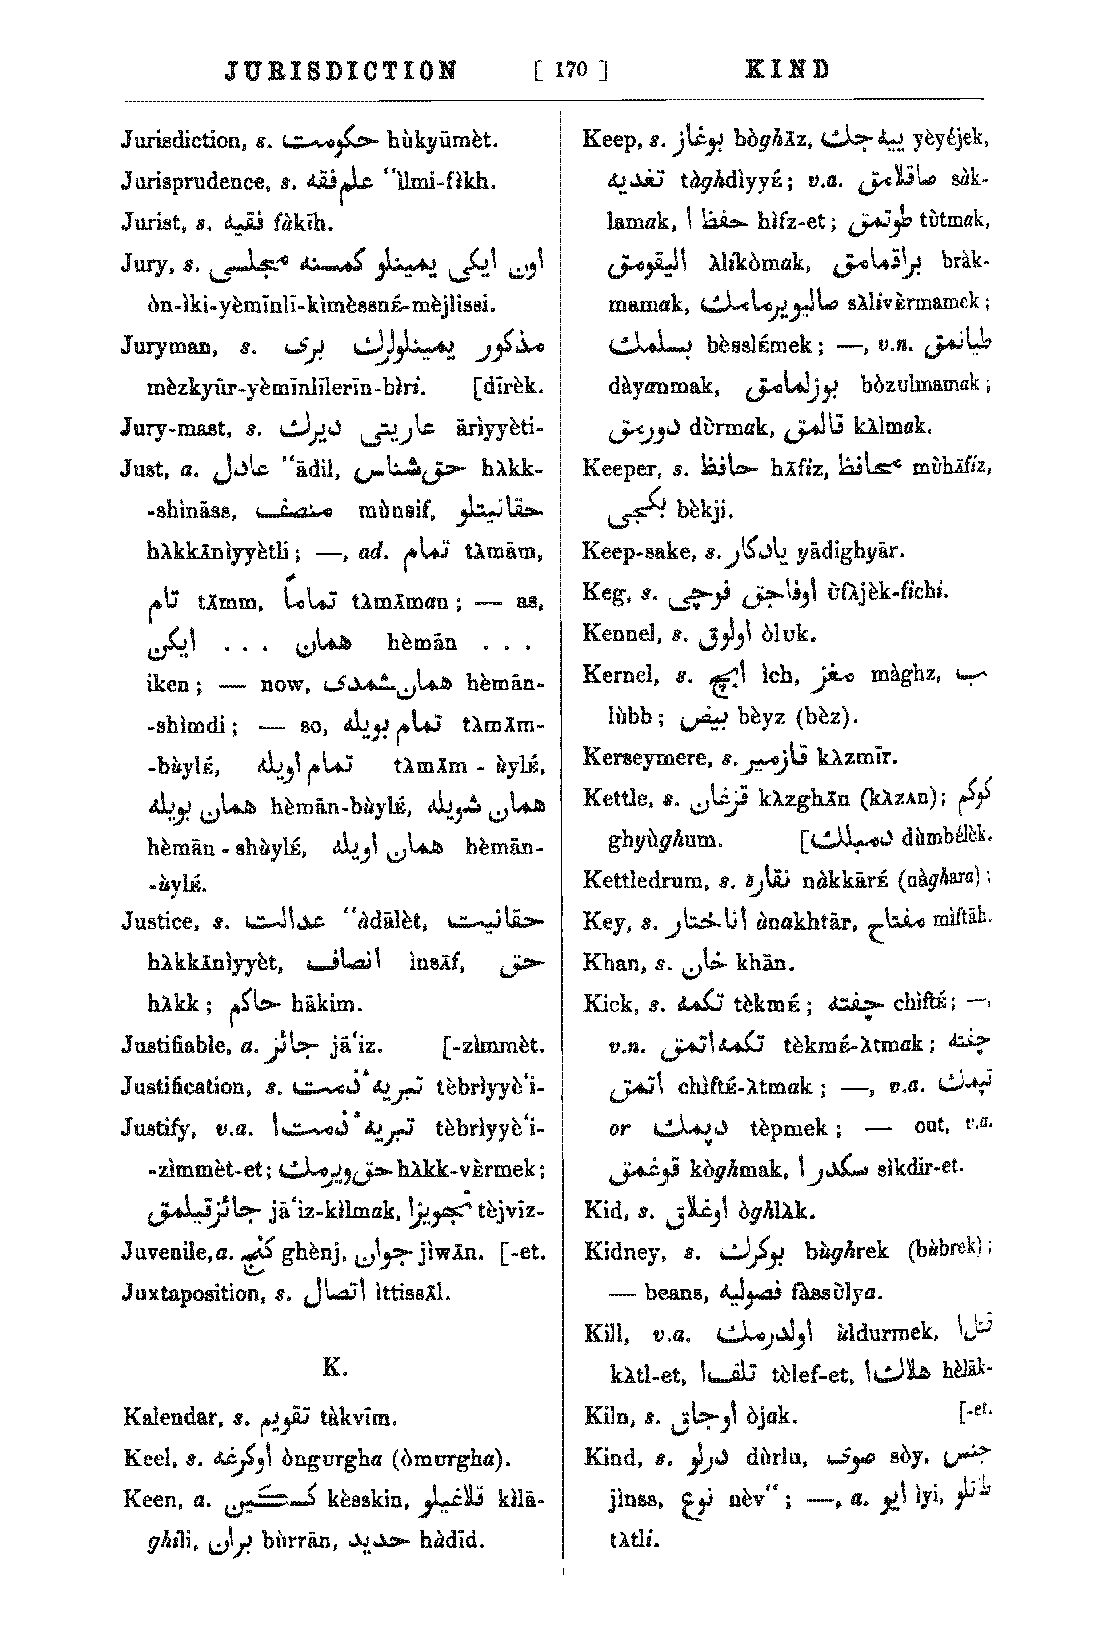 JURISDICTION [ 170 ] KIND
Jurisdiction, s. حكومت hùkyūmèt.
Jurisprudence, s. علم فقه “ìlmi-fìkh.
Jurist, s. فقيه fàkīh.
Jury, s. اون ايكى يمينلو كمسنه مجلسى
òn-ìki-yèmīnlī-kìmèssnÉ-mèjlissi.
Juryman, s. مذكور يمينلولرك برى
mèzkyūr-yèmīnlīlerīn-bìri. [dīrèk.
Jury-mast, s. عاريتى ديرك āriyyèti-
Just, a. عادل “ādil, حق شناس hλkk-
-shināss, منصف mùnsif, حقانيتلو
hλkkΛnìyyètli; —, ad. تمام tλmām,
تام tΛmm, تماماً tλmΛman; — as,
همان . . . ايكن hèmān . . .
iken; — now, همان شمدى hèmān-
-shìmdi; — so, تمام بويله tλmΛm-
-bùylÉ, تمام اويله tλmΛm - ùylÉ,
همان بويله hèmān-bùylÉ, همان شويله
hèmān - shùylÉ, همان اويله hèmān-
-ùylÉ.
Justice, s. عدالت “àdālèt, حقانيت
hλkkΛnìyyèt, انصاف ìnsΛf, حق
hλkk; حاكم hākim.
Justifiable, a. جائز jā‘iz. [-zìmmèt.
Justification, s. تبريهٔ ذمت tèbrìyyè‘i-
Justify, v.a. تبريهٔ ذمت ا tèbrìyyè‘i-
-zìmmèt-et; حق ويرمك hλkk-vÈrmek;
جائز قيلمق jā‘iz-kìlmak, تجويز ا tèjvīz-
Juvenile, a. كنج ghènj, جوان jìwΛn. [-et.
Juxtaposition, s. اتصال ìttissΛl.
K.
Kalendar, s. تقويم tàkvīm.
Keel, s. اوكرغه òngurgha (òmurgha).
Keen, a. كسكين kèsskin, قلاغيلو kìlā-
ghīli, بران bùrrān, حديد hàdīd.
Keep, s. بوغاز bòghΛz, ييه جك yèyéjek,
تغديه tàghdìyyÉ; v.a. صاقلامق sàk-
lamak, حفظ ا hìfz-et; طوتمق tùtmak,
اليقومق λlīkòmak, براقمامق bràk-
mamak, صاليويرمامك sλlivÈrmamek;
بسلمك bèsslÉmek; —, v.n. طيانمق
dàyanmak, بوزلمامق bòzulmamak;
دورمق dùrmak, قالمق kλlmak.
Keeper, s. حافظ hΛfiz, محافظ mùhΛfiz,
بكجى bèkji.
Keep-sake, s. يادكار yādighyār.
Keg, s. اوفاجق فوچى ùfλjèk-fichi.
Kennel, s. اولوق òluk.
Kernel, s. ايچ ìch, مغز màghz, لب
lùbb; بيض bèyz (bèz).
Kerseymere, s. قازمير kλzmīr.
Kettle, s. قزغان kλzghΛn (kλzΛn); كوكم
ghyùghum. [دمبلك dùmbélèk.
Kettledrum, s. نقاره nàkkārÉ (nàghara);
Key, s. اناختار ànakhtār, مفتاح mìftāh.
Khan, s. خان khān.
Kick, s. تكمه tèkmÉ; چفته chìftÉ; —,
v.n. تكمه اتمق tèkmÉ-λtmak; چفته
اتمق chìftÉ-λtmak; —, v.a. تپمك
or دپمك tèpmek; — out, v.a.
قوغمق kòghmak, سكدر ا sìkdìr-et.
Kid, s. اوغلاق òghlλk.
Kidney, s. بوكرك bùghrek (bùbrek);
— beans, فصوليه fàssùlya.
Kill, v.a. اولدرمك ùldurmek, قتل ا
kλtl-et, تلف ا tèlef-et, هلاك ا hèlāk-
Kiln, s. اوجاق òjak. [-et.
Kind, s. درلو dùrlu, صوى sòy, جنس
jìnss, نوع nèv“; —, a. ايو ìyi, طاتلو
tλtli.